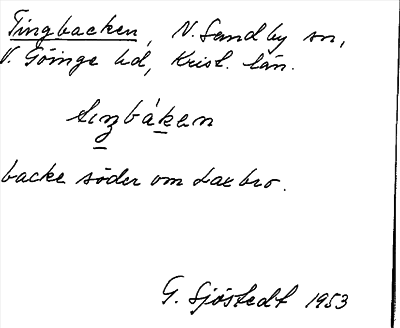 Tingbacken, N. Sandby sn,
V. Göinge hd, Krist. län.
backe söder om Laxbro.
G. Sjöstedt 1953